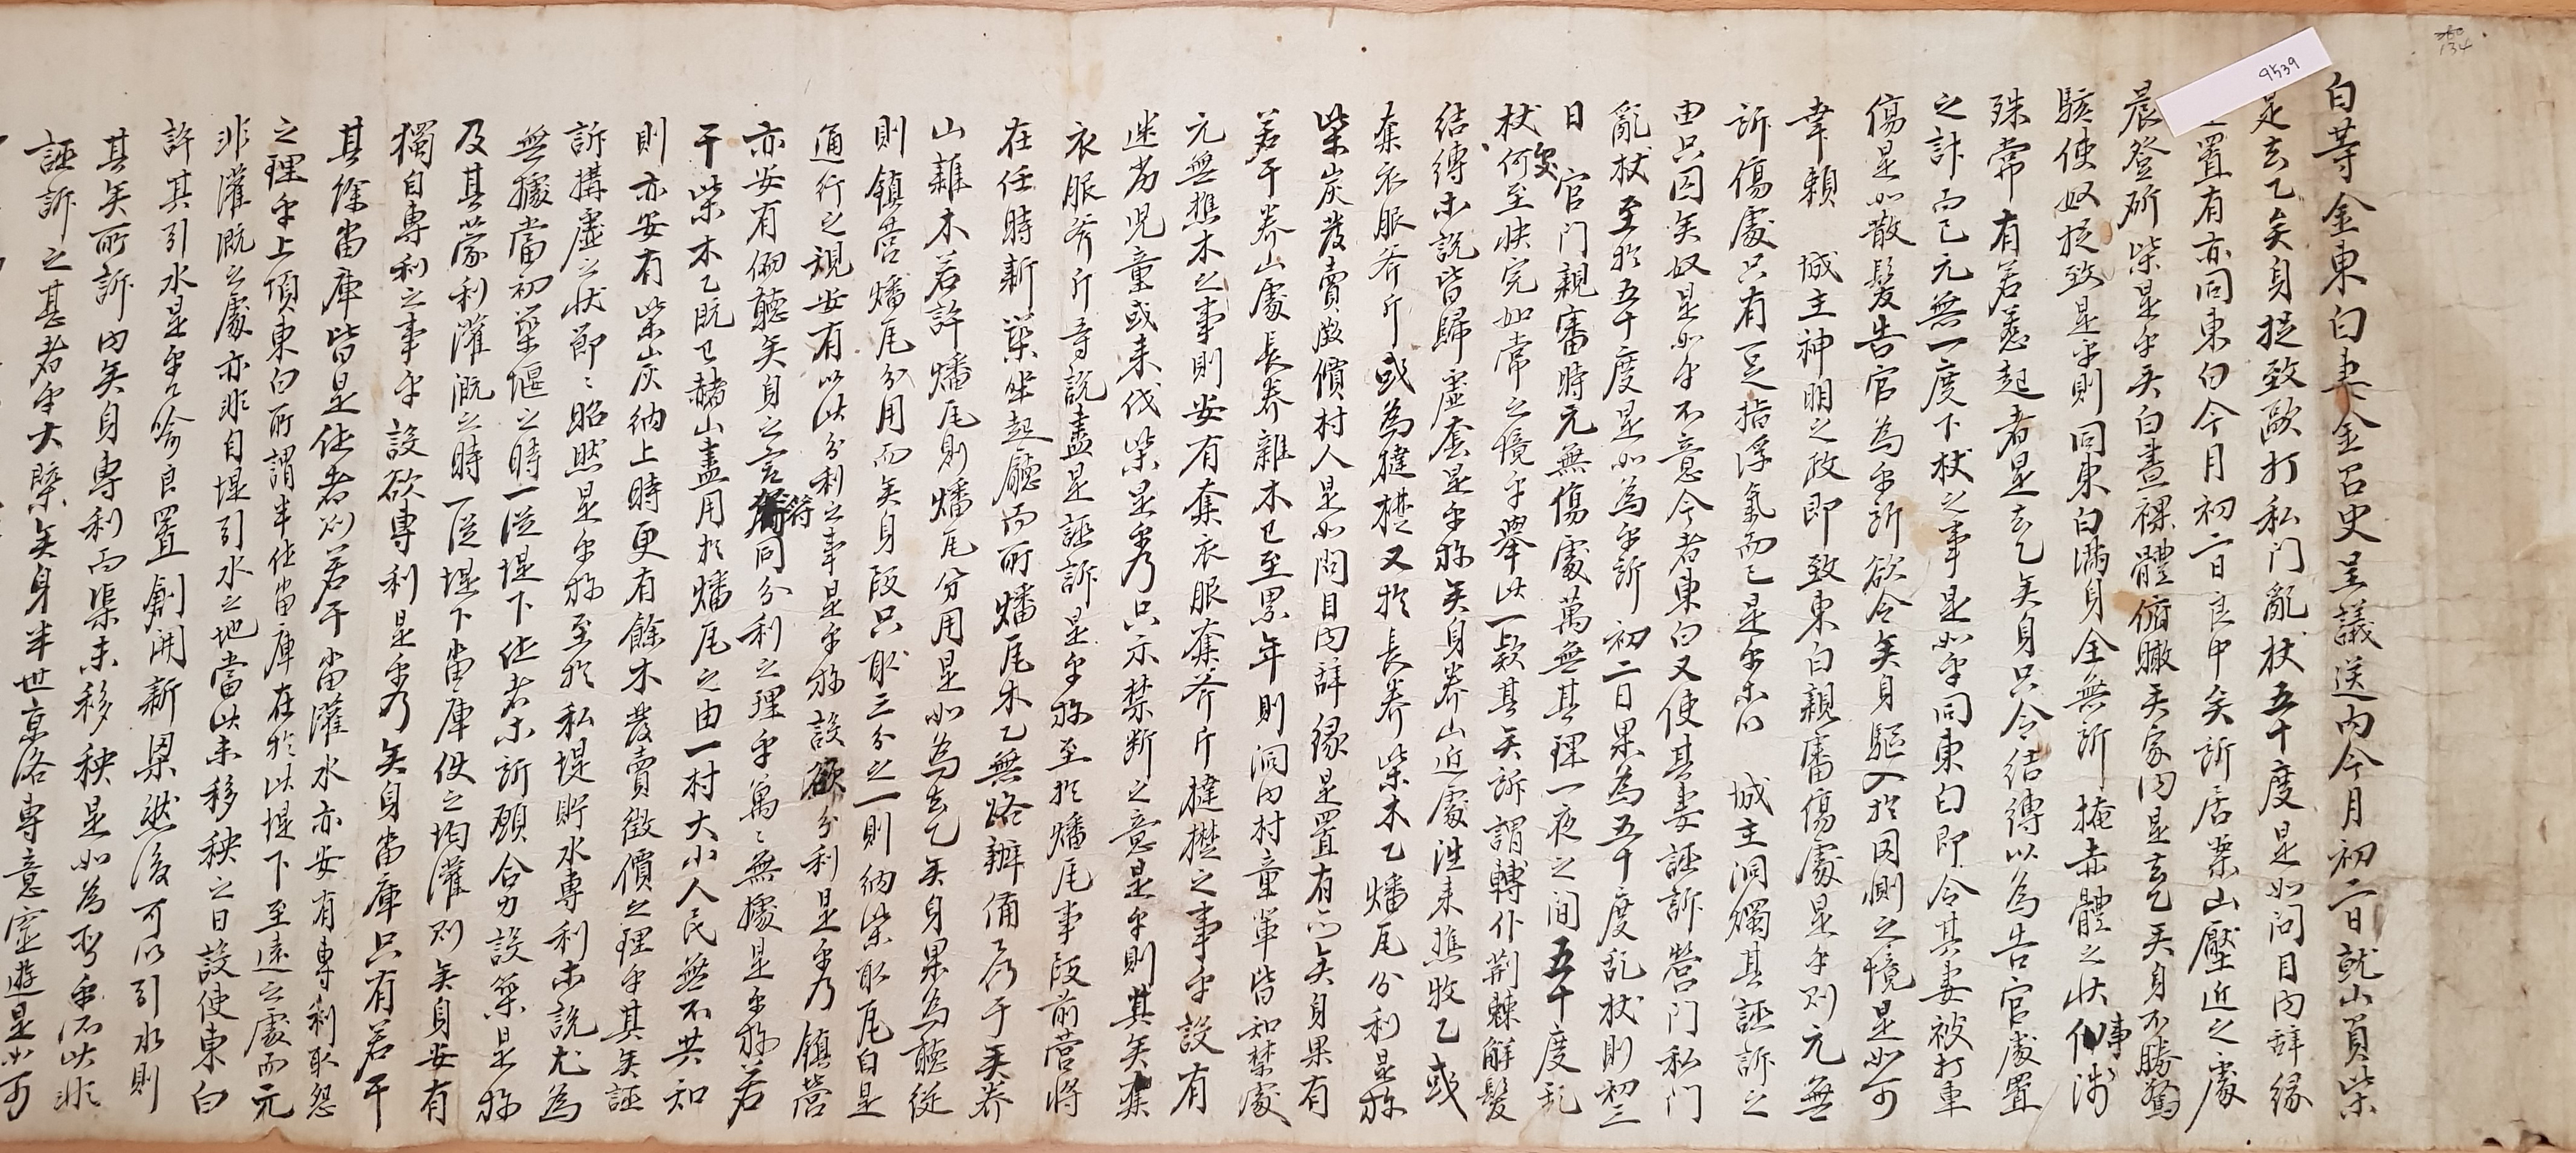 白等金東白妻金召史呈議送內今月初二日就山負柴
是去乙矣身捉致毆打私門亂杖五十度是如問目內辭緣
置有亦同東白今月初二日良中矣訴居案山壓近之處
晨登斫柴是乎矣白晝裸體俯瞰矣家內是去乙矣身不勝驚
駭使奴捉致是乎則同東白滿身全無所掩赤體之狀事涉
殊常有若惹起者是去乙矣身只令結縛以爲告官處置
之計而已元無一度下杖之事是如乎同東白卽令其妻被打車
傷是如散髮告官爲乎所欲令矣身驅入於罔測之境是如可
幸賴 城主神明之政卽致東白親審傷處是乎則元無
訴傷處只有足指浮氣而已是乎㫆 城主洞燭其誣訴之
由只囚矣奴是如乎不意今者東白又使其妻誣訴營門私門
亂杖至於五十度是如爲乎所初二日果爲五十度乱杖則初三
日 官門親審時元無傷處萬無其理一夜之間五十度乱
杖何至快完如常之境乎擧此一款其矣訴謂轉仆荊棘解髮
結縛等說皆歸虛套是乎㫆矣身養山近處往來樵牧乙或
奪衣服斧斤或爲撻楚又於長養柴木乙燔瓦分利是㫆
柴炭發賣徵價村人是如問目內辭緣是置有亦矣身果有
若干養山處長養雜木已至累年則洞內村童軍皆知禁處
元無樵木之事則安有奪衣服奪斧斤撻楚之事乎設有
迷劣兒童或來伐柴是乎乃只示禁斷之意是乎則其矣奪
衣服斧斤等說盡是誣訴是乎㫆至於燔瓦事段前營將
在任時新築坐起廳而所燔瓦木乙無路辦備乎矣養
山雜木若許燔瓦則燔瓦分用是如爲去乙矣身果爲聽從
則鎭營燔瓦分用而矣身段只取三分之一則納柴取瓦自是
通行之規安有以此分利之事是乎㫆設欲分利是乎乃鎭營
亦安有俯聽矣身之言符同分利之理乎萬萬無據是乎㫆若
干柴木乙旣已赭山盡用於燔瓦之由一村大小人民無不共知
則亦安有柴炭納上時更有餘木發賣徵價之理乎其矣誣
訴搆虛之狀節節昭然是乎㫆至於私堤貯水專利等說尤爲
無據當初築堰之時一從堤下作者等訴願合力設築是㫆
及其蒙利灌漑之時一從堤下畓庫使之均灌則矣身安有
獨自專利之事乎設欲專利是乎乃矣身畓庫只有若干
其餘畓庫皆是作者則若干畓灌水亦安有專利取怨
之理乎上項東白所謂半作畓庫在於此堤下至遠之處而元
非灌漑之處亦非自堤引水之地當此未移秧之日設使東白
許其引水是乎喩良置創開新渠然後可以引水則
其矣所訴內矣身專利而渠未移秧是如爲所乎所此非
誣訴之甚者乎大槩矣身半世京洛專意宦遊是如可